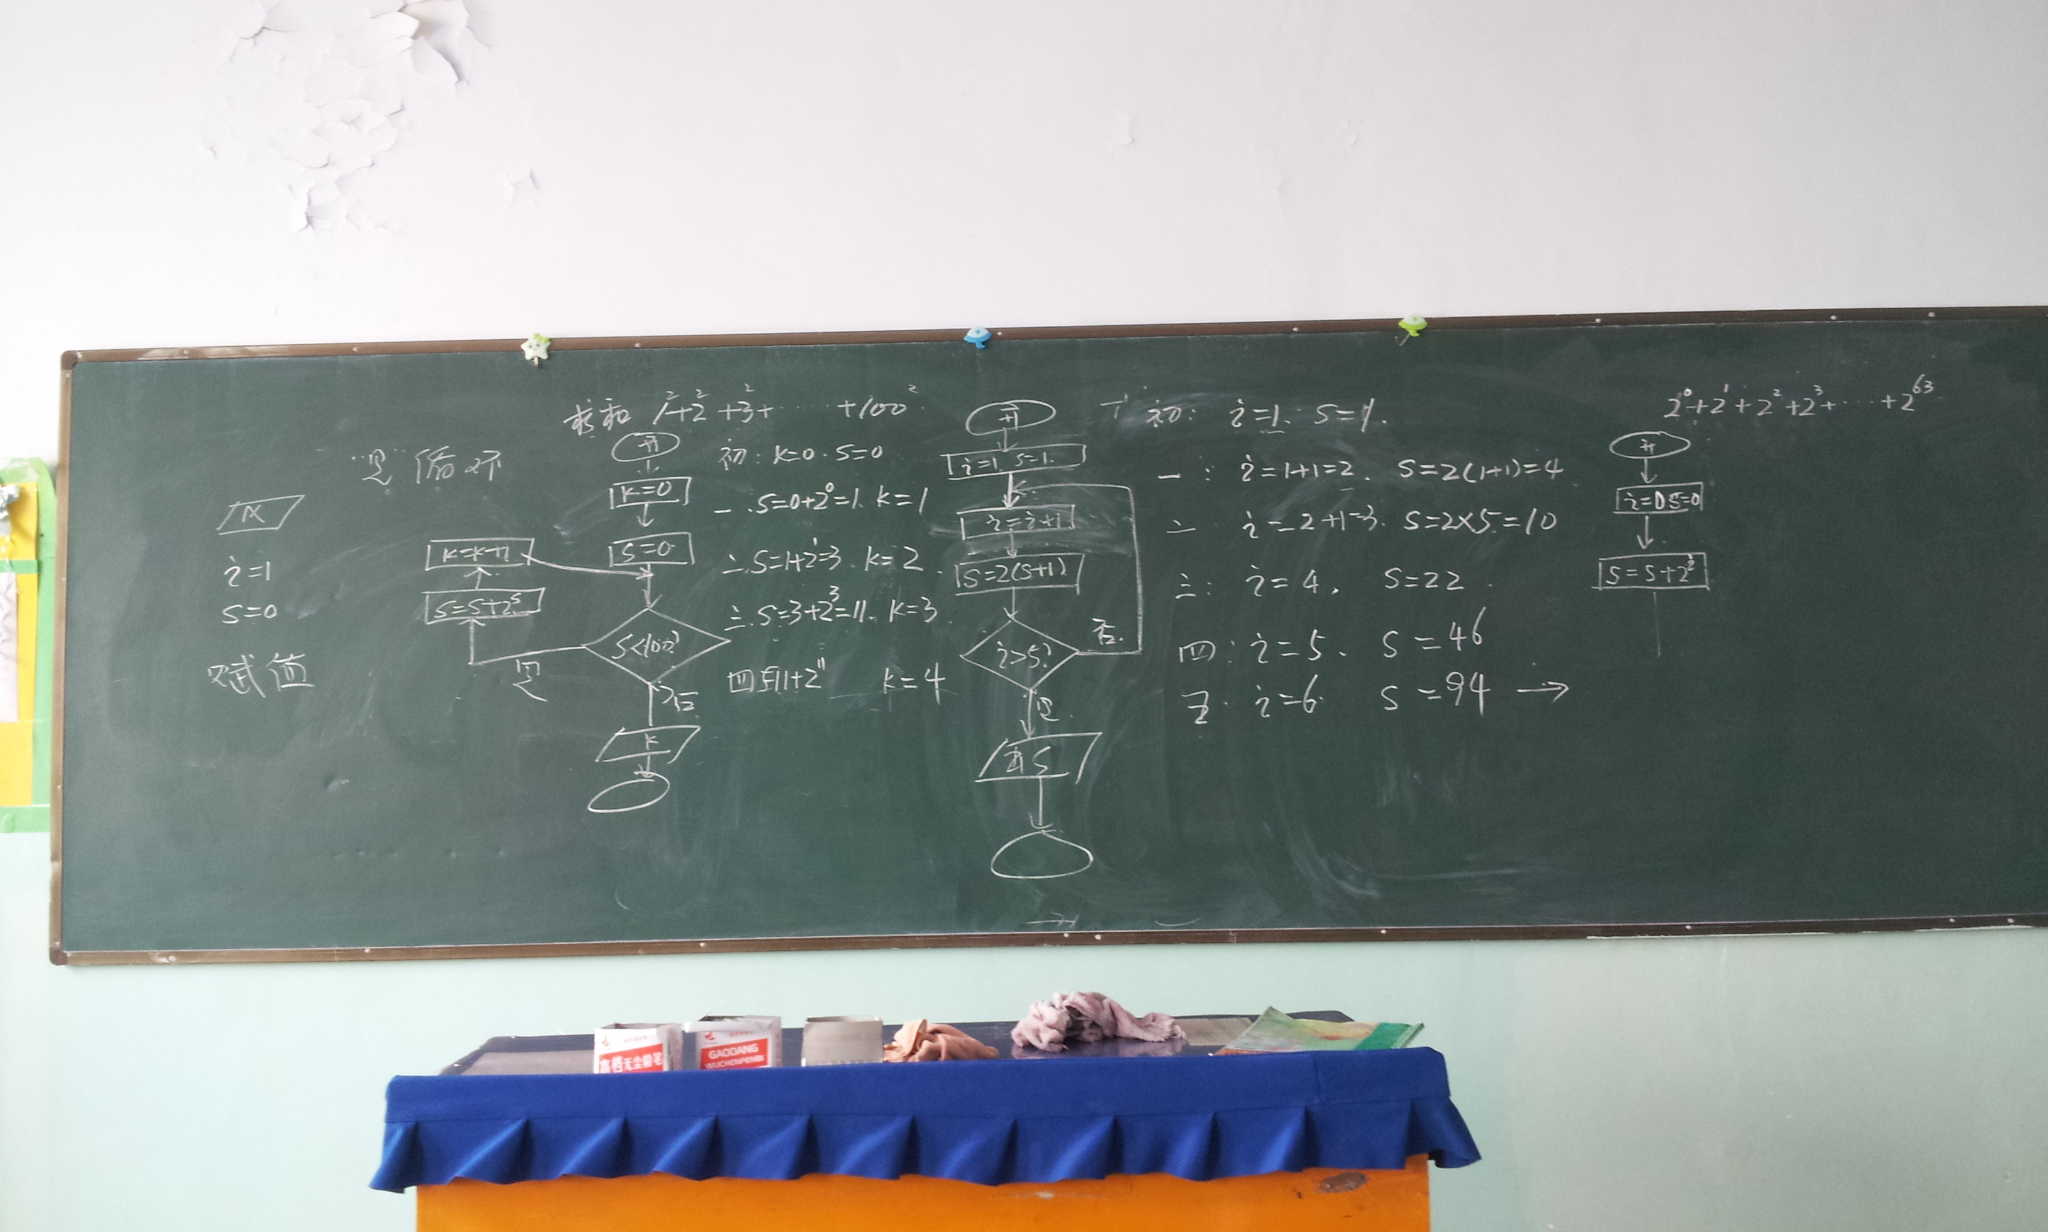 求和 1²+2²+3²+ ······ +100²
"是"循环
i=1
S=0
赋值
开
k=0
S=0
S<100?
是
否
S=S+2^S
k=k+1
k
初: k=0. S=0
一. S=0+2⁰=1. k=1
二. S=1+2¹=3. k=2
三. S=3+2³=11. k=3
四 S=11+2¹¹ k=4
开
i=1, S=1
i=i+1
S=2(S+1)
i>5?
否
是
出 S
初: i=1. S=1.
一: i=1+1=2. S=2(1+1)=4
二 i=2+1=3. S=2×5=10
三: i=4, S=22.
四: i=5. S=46
五. i=6. S=94 →
2⁰+2¹+2²+2³+ ··· +2⁶³
开
i=0 S=0
S=S+2^i
GAODANG